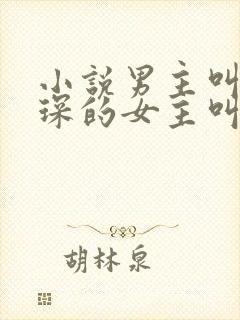 小說男主叫
琛的女主叫
胡林泉